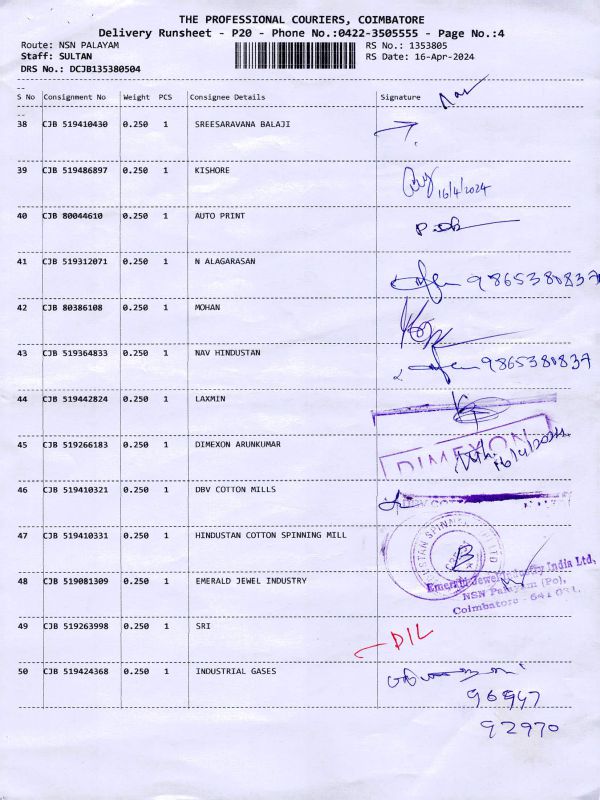 THE PROFESSIONAL COURIERS, COIMBATORE
Delivery Runsheet - P20 - Phone No.:0422-3505555 - Page No.:4
Route: NSN PALAYAM RS No.: 1353805
Staff: SULTAN RS Date: 16-Apr-2024
DRS No.: DCJB135380504
S No Consignment No Weight PCS Consignee Details Signature
38 CJB 519410430 0.250 1 SREESARAVANA BALAJI
39 CJB 519486897 0.250 1 KISHORE 16/4/2024
40 CJB 80044610 0.250 1 AUTO PRINT
41 CJB 519312071 0.250 1 N ALAGARASAN 9865380837
42 CJB 80386108 0.250 1 MOHAN
43 CJB 519364833 0.250 1 NAV HINDUSTAN 9865380837
44 CJB 519442824 0.250 1 LAXMIN
45 CJB 519266183 0.250 1 DIMEXON ARUNKUMAR DIMEXON 16/4/2024
46 CJB 519410321 0.250 1 DBV COTTON MILLS
47 CJB 519410331 0.250 1 HINDUSTAN COTTON SPINNING MILL
48 CJB 519081309 0.250 1 EMERALD JEWEL INDUSTRY Emerald Jewel Industry India Ltd,
NSN Palayam (Po),
Coimbatore - 641 031.
49 CJB 519263998 0.250 1 SRI D/L
50 CJB 519424368 0.250 1 INDUSTRIAL GASES
96947
92970